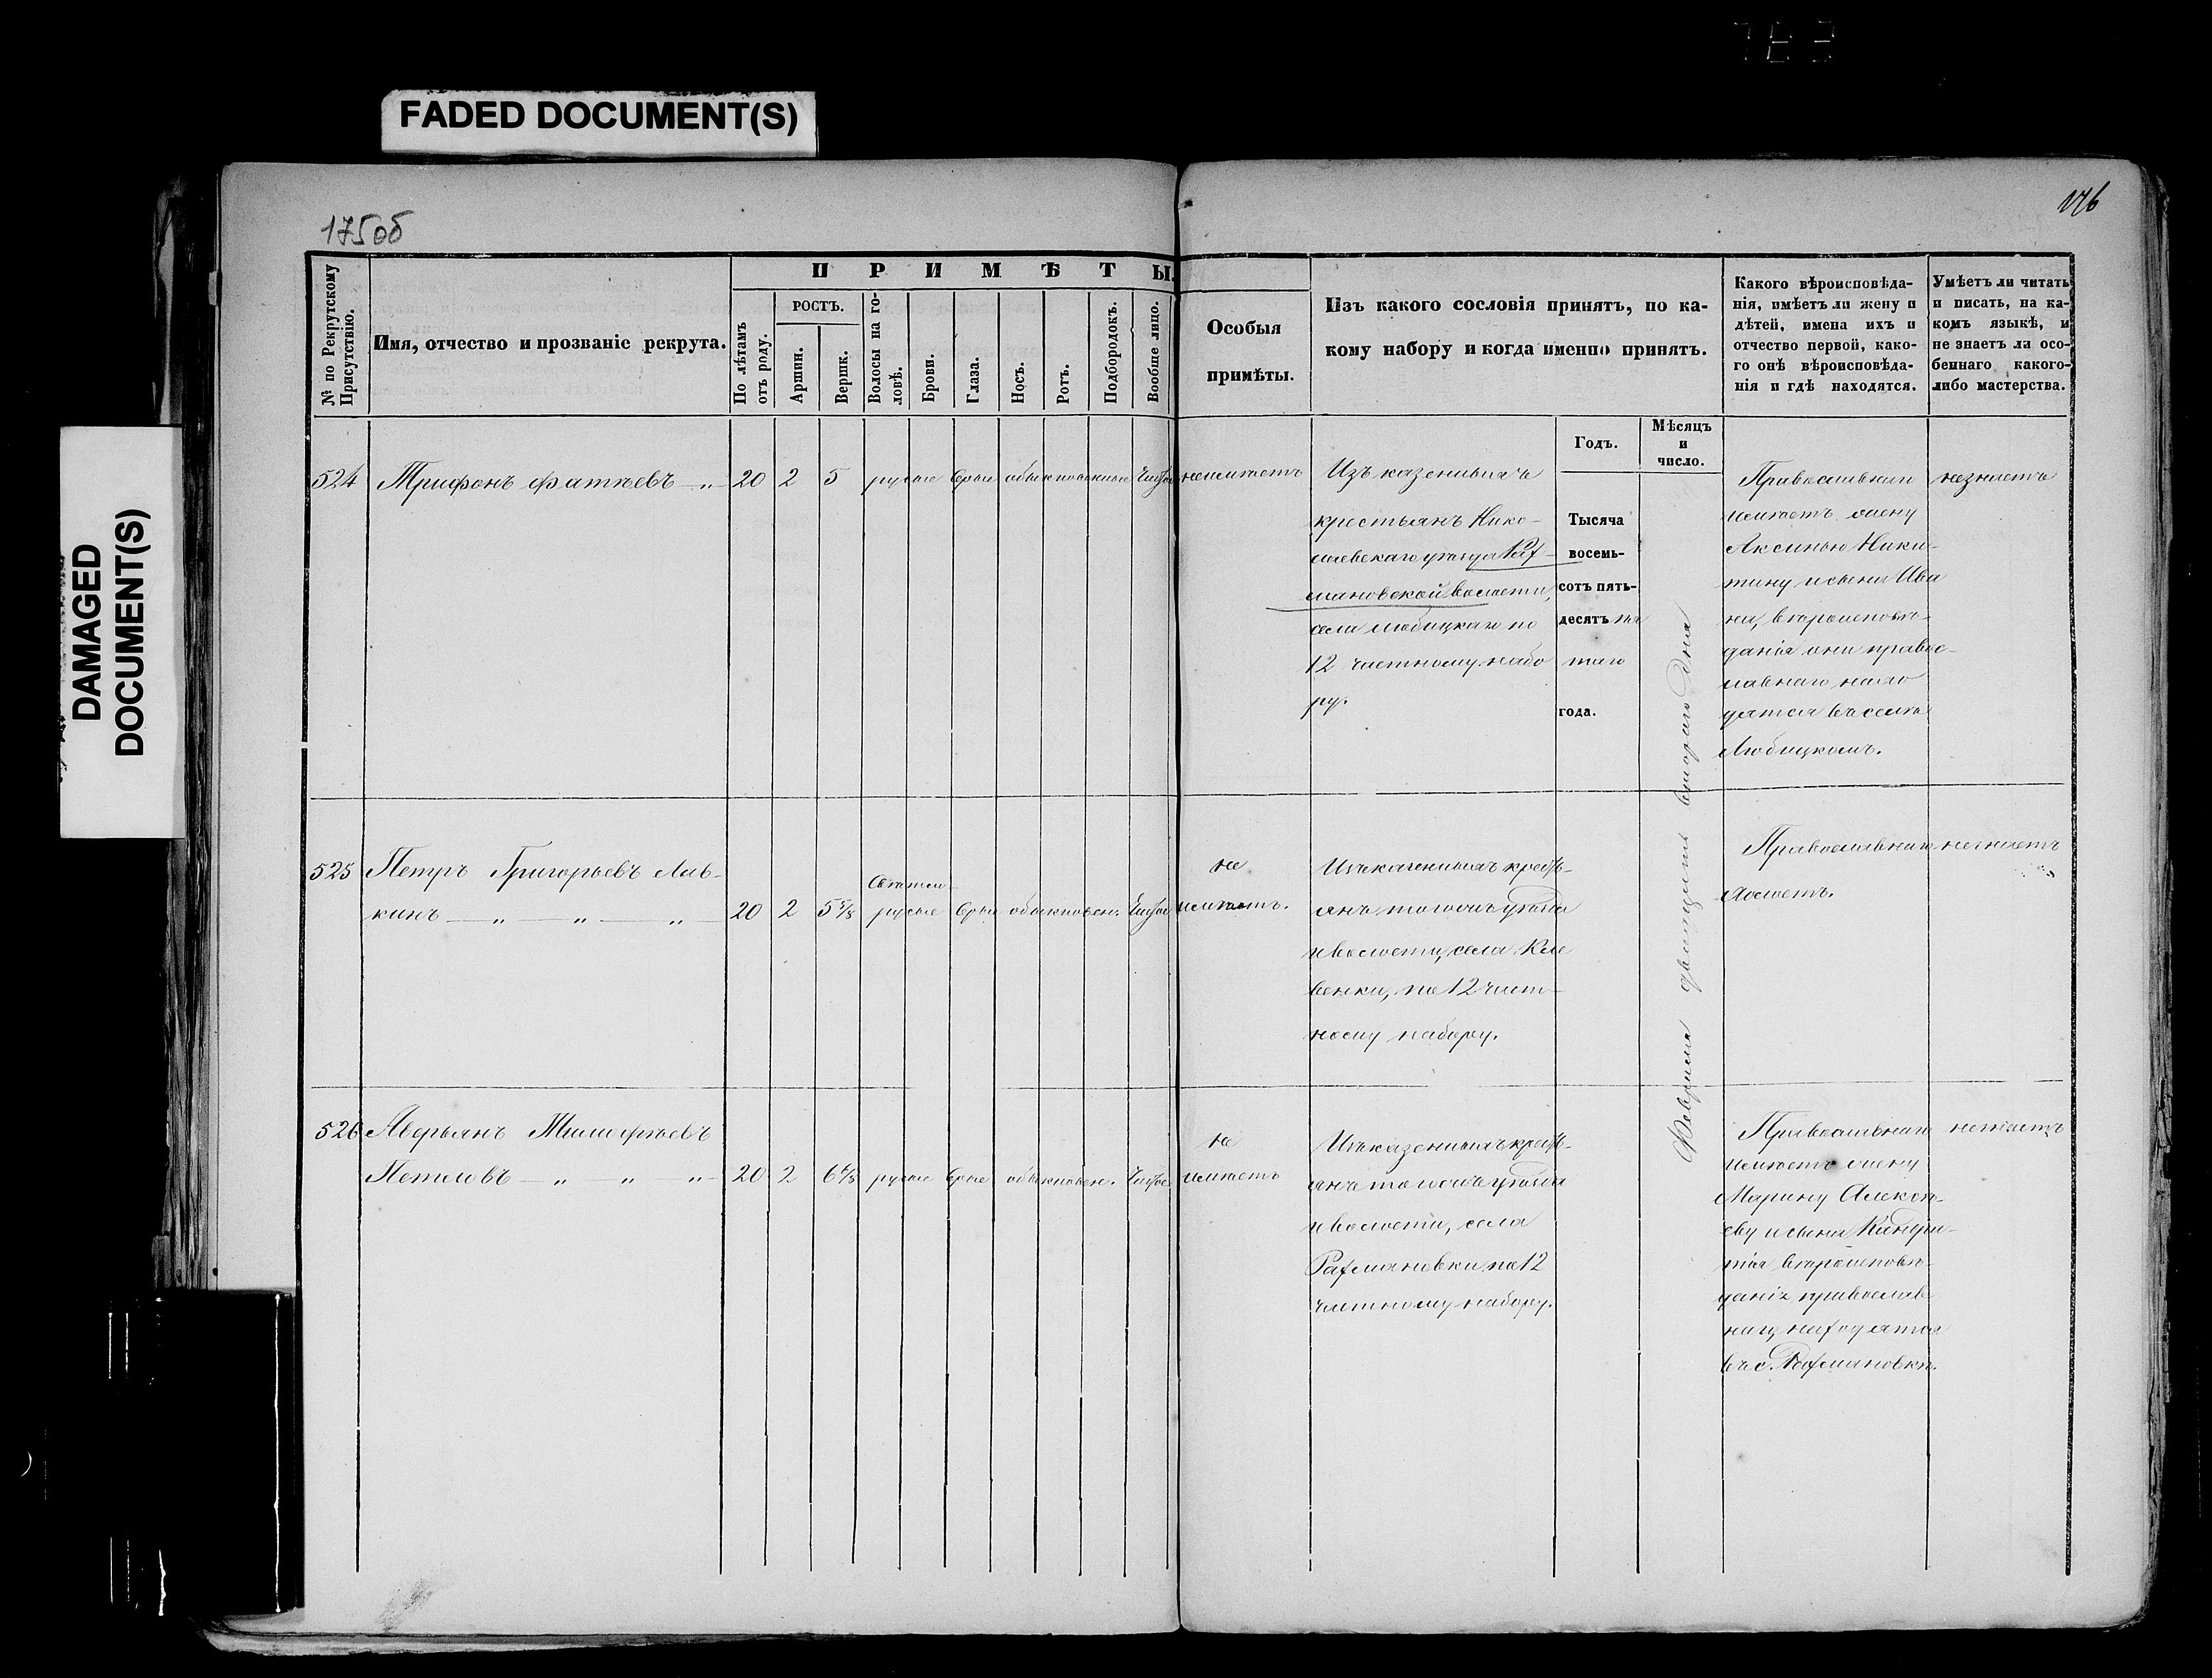 FADED DOCUMENT(S)
DAMAGED
DOCUMENT(S)
175об
176
№ по Рекрутскому
Присутствію.
Имя, отчество и прозваніе рекрута.
ПРИМѢТЫ.
По лѣтамъ
отъ роду.
РОСТЪ.
Аршин.
Вершк.
Волосы на го-
ловѣ.
Брови.
Глаза.
Носъ.
Ротъ.
Подбородокъ.
Вообще лицо.
Особыя
примѣты.
Изъ какого сословія принятъ, по ка-
кому набору и когда именно принятъ.
Какого вѣроисповѣда-
нія, имѣетъ ли жену и
дѣтей, имена ихъ и
отчество первой, како-
го онѣ вѣроисповѣда-
нія и гдѣ находятся.
Умѣетъ ли читать
и писать, на ка-
комъ языкѣ, и
не знаетъ ли осо-
беннаго какого-
либо мастерства.
Годъ.
Мѣсяцъ
и
число.
524 Трифонъ Фатѣевъ 20 2 5 русые сѣрые обыкновенные чистое неимѣетъ
Изъ казенныхъ
крестьянъ Нико-
лаевскаго уѣзда Рах-
мановской волости,
села Любицкаго по
12 частному набо
ру.
Тысяча
восемь-
сотъ пять-
десятъ пя
таго
года.
Февраля двадцать втораго дня
Православнаго
имѣетъ жену
Аксинью Ники-
тину и сына Ива
на, вѣроисповѣ-
данія они правос-
лавнаго нахо
дятся въ селѣ
Любицкомъ.
незнаетъ
525 Петръ Григорьевъ Лав-
кинъ 20 2 5 5/8 Свѣтло-
русые сѣрые обыкновен. чистое
не
имѣетъ.
Изъ казенныхъ кресть-
янъ тогожъ уѣзда
и волости, села Кле
венки, по 12 част-
ному набору.
Православнаго
холостъ.
незнаетъ
526 Аверьянъ Тимофѣевъ
Петловъ 20 2 6 4/8 русые сѣрые обыкновен. чистое
не
имѣетъ
Изъ казенныхъ кресть-
янъ тогожъ уѣзда
и волости, села
Рахмановки по 12
частному набору.
Православнаго
имѣетъ жену
Марину Алексѣ-
еву и сына Кандра-
тія вѣроисповѣ-
данія православ
наго, находятся
въ с. Рахмановкѣ.
незнаетъ